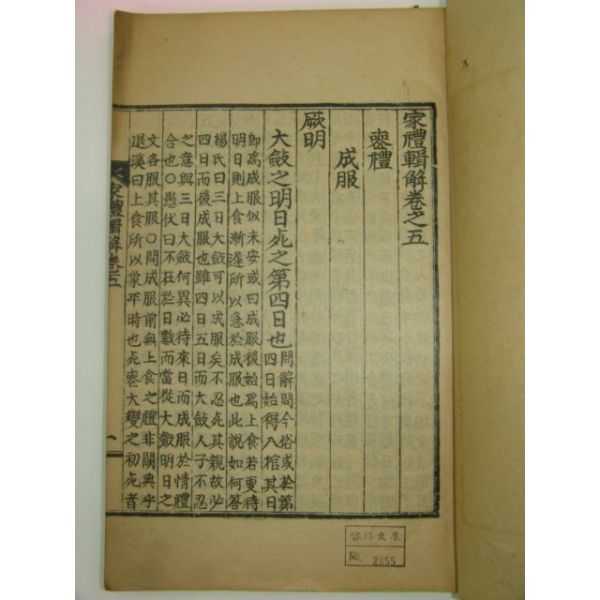 家禮輯解卷之五
喪禮
成服
厥明
大斂之明日死之第四日也 問解問今俗或於第
四日始得入棺其日
卽爲成服似未安或曰成服後始爲上食若更待
明日則上食漸遲所以急於成服也此說如何答
楊氏曰三日大斂可以成服矣不忍死其親故必
四日而後成服也雖四日五日而大斂人子不忍
之意與三日大斂何異必待來日而成服於情禮
合也○愚伏曰不在於日數而當從大斂明日之
文各服其服○問成服前無上食之禮非闕典乎
退溪曰上食所以象平時也死喪大變之初死者
家禮輯解卷五
一
文庫
No. 2855